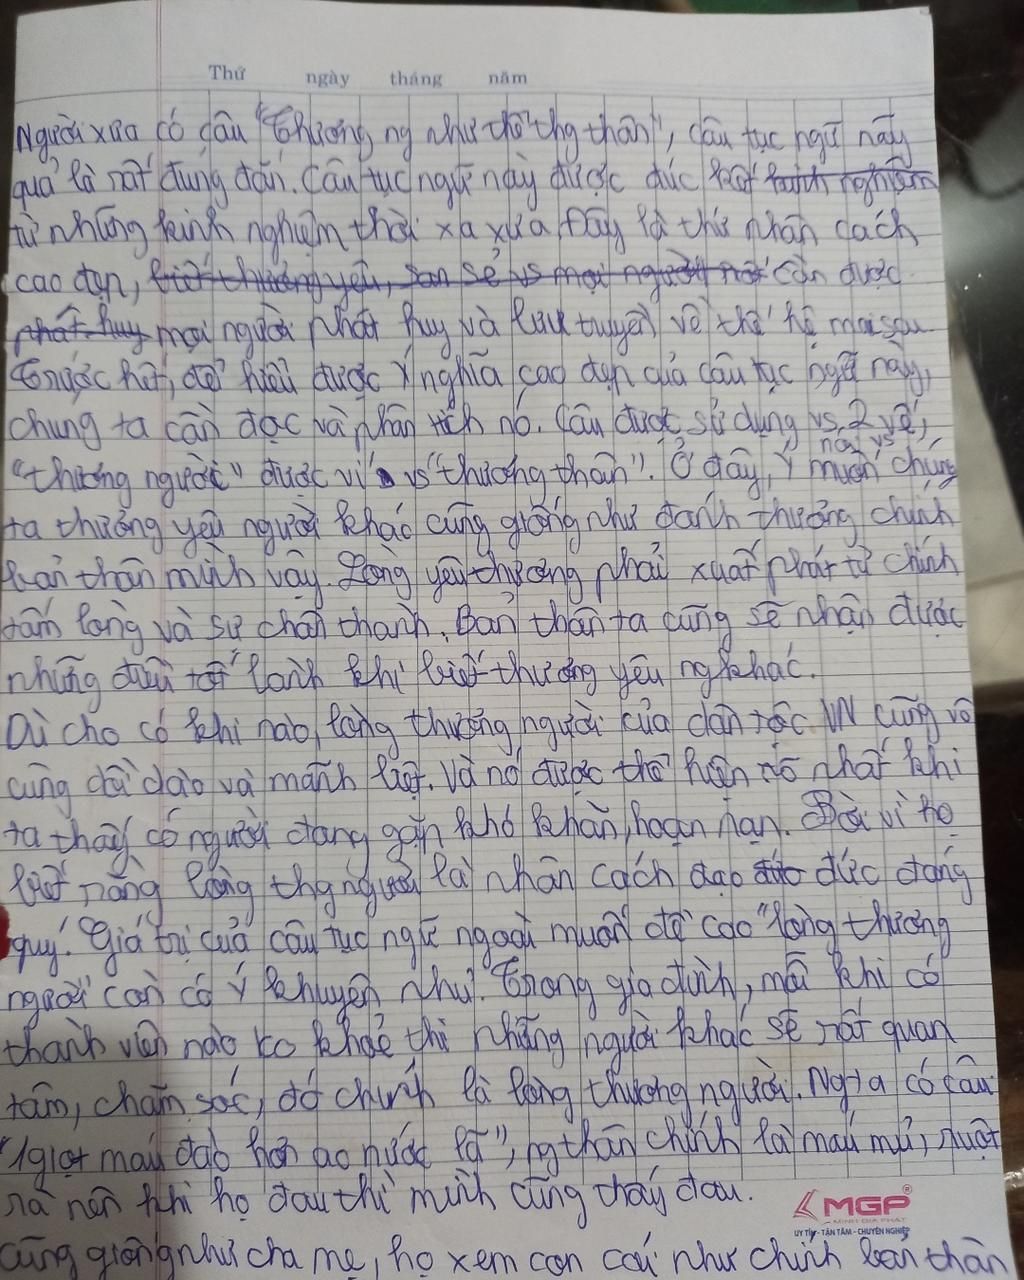 Thứ ngày tháng năm
Người xưa có câu "Thương ng như thể thg thân", câu tục ngữ này
quả là rất đúng đắn. Câu tục ngữ này được đúc kết kinh nghiệm
từ những kinh nghiệm thời xa xưa. Đây là thứ nhân cách
cao đẹp, biết thương yêu, san sẻ vs mọi người nó cần được
phát huy mọi người phát huy và lưu truyền về thế hệ mai sau
Trước hết, để hiểu được ý nghĩa cao đẹp của câu tục ngữ này,
chúng ta cần đọc và phân tích nó. Câu được sử dụng vs 2 vế,
"thương người" được ví vs "thương thân". Ở đây, ý muốn nói vs chúng
ta thương yêu người khác cũng giống như dành thương chính
bản thân mình vậy. Lòng yêu thương phải xuất phát từ chính
tấm lòng và sự chân thành. Bản thân ta cũng sẽ nhận được
những điều tốt lành khi biết thương yêu ng khác.
Dù cho có khi nào, lòng thương người của dân tộc VN cũng vô
cùng dồi dào và mãnh liệt. Và nó được thể hiện rõ nhất khi
ta thấy có người đang gặp khó khăn, hoạn nạn. Bởi vì họ
biết rằng lòng thg người là nhân cách đạo đức đáng
quý. Giá trị của câu tục ngữ ngoài muốn đề cao "lòng thương
người" còn có ý khuyên nhủ. Trong gia đình, mỗi khi có
thành viên nào ko khỏe thì những người khác sẽ rất quan
tâm, chăm sóc, đó chính là lòng thương người. Ng ta có câu
"1 giọt máu đào hơn ao nước lã", ng thân chính là máu mủ, ruột
rà nên khi họ đau thì mình cũng thấy đau.
MGP
MINH GIA PHÁT
UY TÍN - TẬN TÂM - CHUYÊN NGHIỆP
Cũng giống như cha mẹ, họ xem con cái như chính bản thân